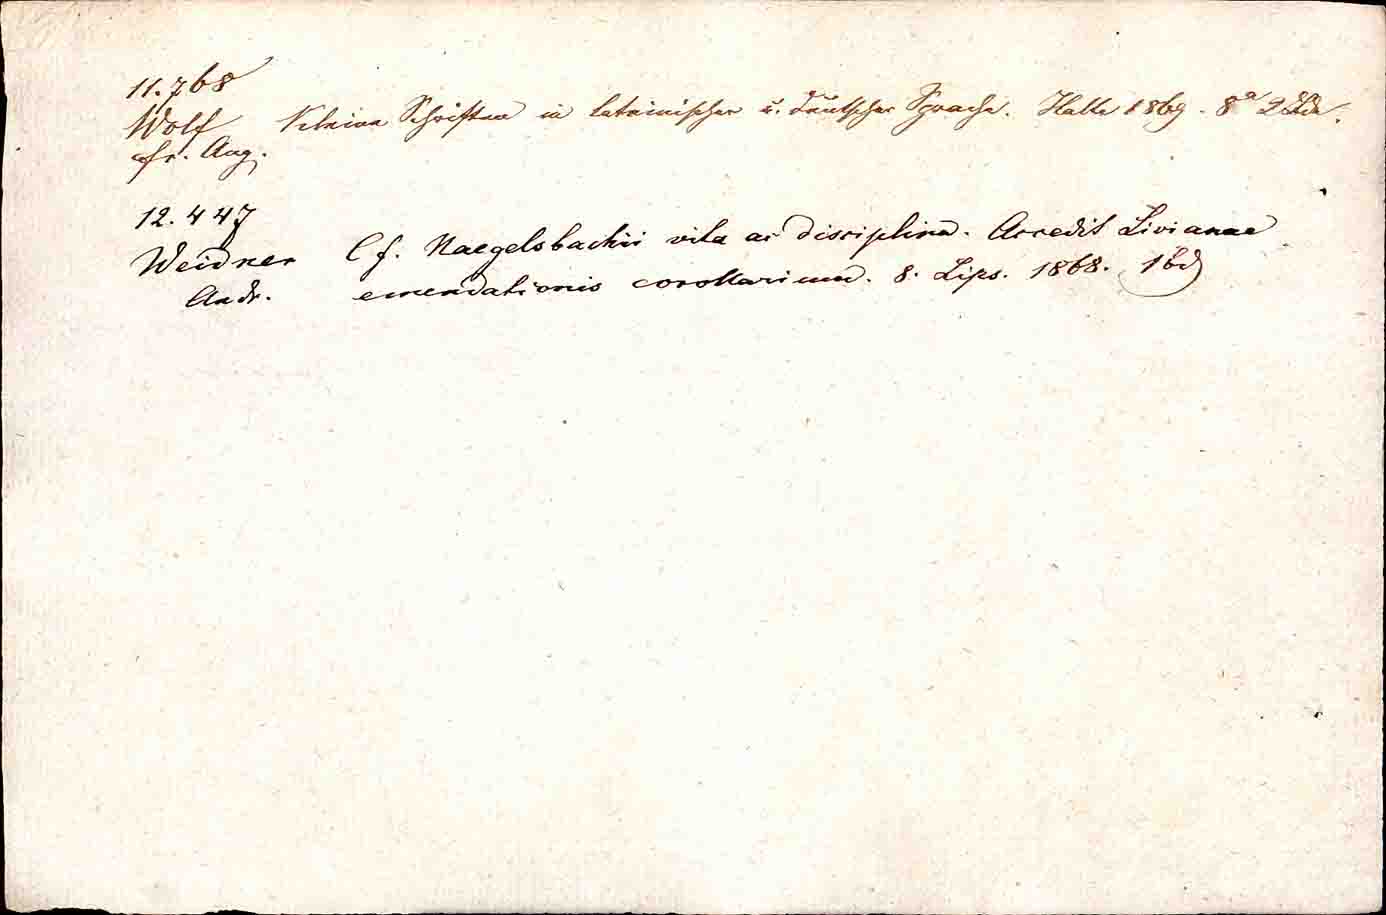 11.768
Wolf Kleine Schriften in lateinischer u. deutscher Sprache. Halle 1869. 8° 2 Bde.
Fr. Aug.
12.447
Weidner C f. Naegelsbachii vita ac disciplina. Accedit Livianae
Andr. emendationis corollarium. 8. Lips. 1868. 1 bd